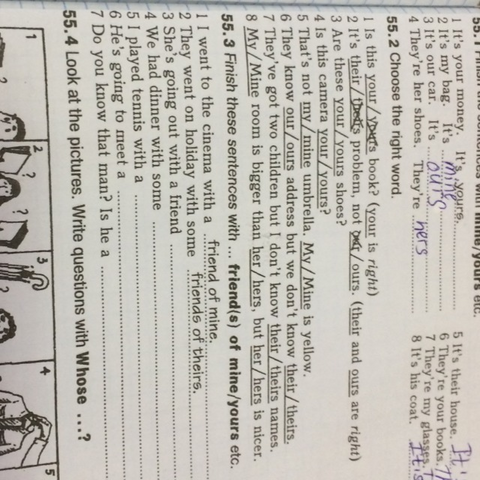 55.1 Finish sentences with mine/yours etc.
1 It's your money. It's yours.
2 It's my bag. It's mine
3 It's our car. It's ours
4 They're her shoes. They're hers
5 It's their house. It'
6 They're your books.
7 They're my glasses.
8 It's his coat. It is
55.2 Choose the right word.
1 Is this your/yours book? (your is right)
2 It's their/theirs problem, not our/ours. (their and ours are right)
3 Are these your/yours shoes?
4 Is this camera your/yours?
5 That's not my/mine umbrella. My/Mine is yellow.
6 They know our/ours address but we don't know their/theirs.
7 They've got two children but I don't know their/theirs names.
8 My/Mine room is bigger than her/hers, but her/hers is nicer.
55.3 Finish these sentences with ... friend(s) of mine/yours etc.
1 I went to the cinema with a friend of mine.
2 They went on holiday with some friends of theirs.
3 She's going out with a friend
4 We had dinner with some
5 I played tennis with a
6 He's going to meet a
7 Do you know that man? Is he a
55.4 Look at the pictures. Write questions with Whose ...?
1
2
3
4
5
?
?